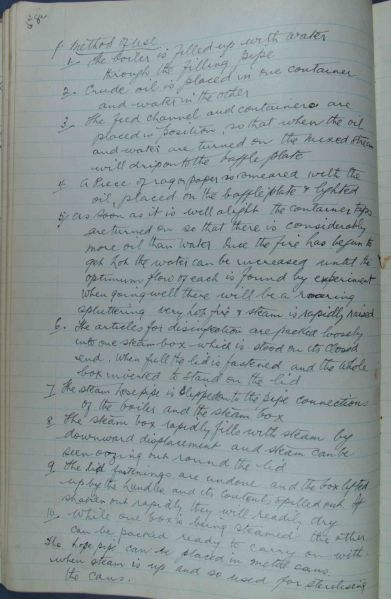 Method of Use
1. The boiler is filled up with water
through the filling pipe
2. Crude oil is placed in one container
and water in the other
3. The feed channel and containers are
placed in position, so that when the oil
and water are turned on the mixed stream
will drip onto the baffle plate
4. A piece of rag or paper smeared with the
oil, placed on the baffle plate & lighted
5. as soon as it is well alight the container taps
are turned on so that there is considerably
more oil than water. Once the fire has begun to
get hot the water can be increased until the
optimum flow of each is found by experiment
when going well there will be a roaring
spluttering very hot fire & steam is rapidly raised
6. The articles for disinfection are packed loosely
into one steam box - which is stood on its closed
end. When full the lid is fastened and the whole
box inverted to stand on the lid
7. The steam hose pipe is slipped onto the pipe connections
of the boiler and the steam box
8. The steam box rapidly fills with steam by
downward displacement and steam can be
seen oozing out round the lid
9. The lid fastenings are undone and the box lifted
up by the handles and its contents spilled out. If
shaken out rapidly they will readily dry
10. While one box is being steamed the other
can be packed ready to carry on with.
The hose pipe can be placed in metal cans
when steam is up and so used for sterilising
the cans.